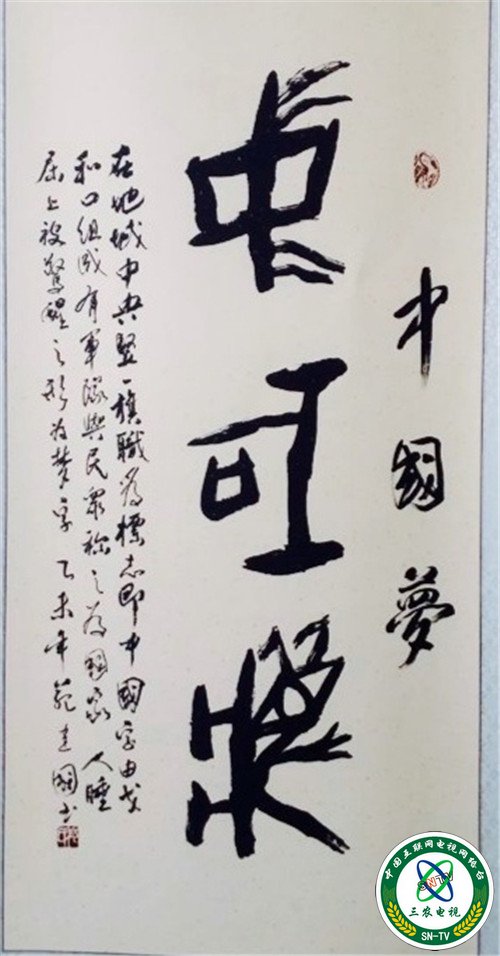 中國夢
中或夢
在地域中央豎一旗職為標志即中國字由戈
和口組成有軍隊與民眾称之為國家人睡
床上被驚醒之形为夢字乙未年范圭國书
中国互联网电视网络台
SNTV
三农电视
SN-TV